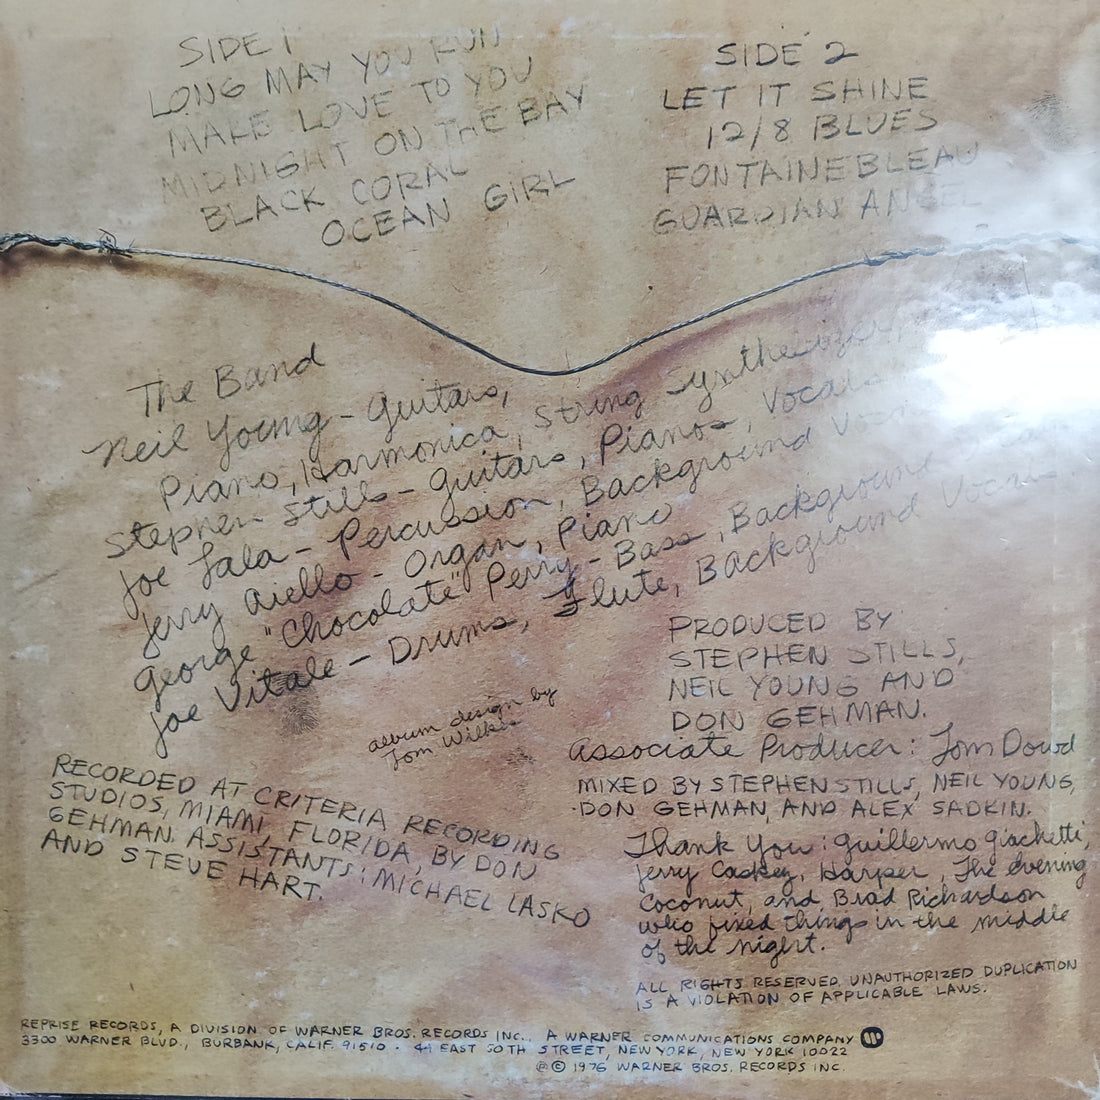 SIDE 1
LONG MAY YOU RUN
MAKE LOVE TO YOU
MIDNIGHT ON THE BAY
BLACK CORAL
OCEAN GIRL
SIDE 2
LET IT SHINE
12/8 BLUES
FONTAINEBLEAU
GUARDIAN ANGEL
The Band
Neil Young - Guitars,
Piano, Harmonica, String Synthesizer,
Stephen Stills - Guitars, Pianos, Vocals
Joe Lala - Percussion, Background Vocals
Jerry Aiello - Organ, Piano
George "Chocolate" Perry - Bass, Background
Joe Vitale - Drums, Flute, Background Vocals
album design by
Tom Wilkes
PRODUCED BY
STEPHEN STILLS,
NEIL YOUNG AND
DON GEHMAN.
Associate Producer: Tom Dowd
MIXED BY STEPHEN STILLS, NEIL YOUNG,
DON GEHMAN, AND ALEX SADKIN.
RECORDED AT CRITERIA RECORDING
STUDIOS, MIAMI, FLORIDA, BY DON
GEHMAN. ASSISTANTS: MICHAEL LASKO
AND STEVE HART.
Thank You: Guillermo Giachetti,
Jerry Caskey, Harper, The evening
Coconut, and Brad Richardson
who fixed things in the middle
of the night.
ALL RIGHTS RESERVED. UNAUTHORIZED DUPLICATION
IS A VIOLATION OF APPLICABLE LAWS.
REPRISE RECORDS, A DIVISION OF WARNER BROS. RECORDS INC., A WARNER COMMUNICATIONS COMPANY
3300 WARNER BLVD., BURBANK, CALIF. 91510 · 44 EAST 50TH STREET, NEW YORK, NEW YORK 10022
℗ © 1976 WARNER BROS. RECORDS INC.